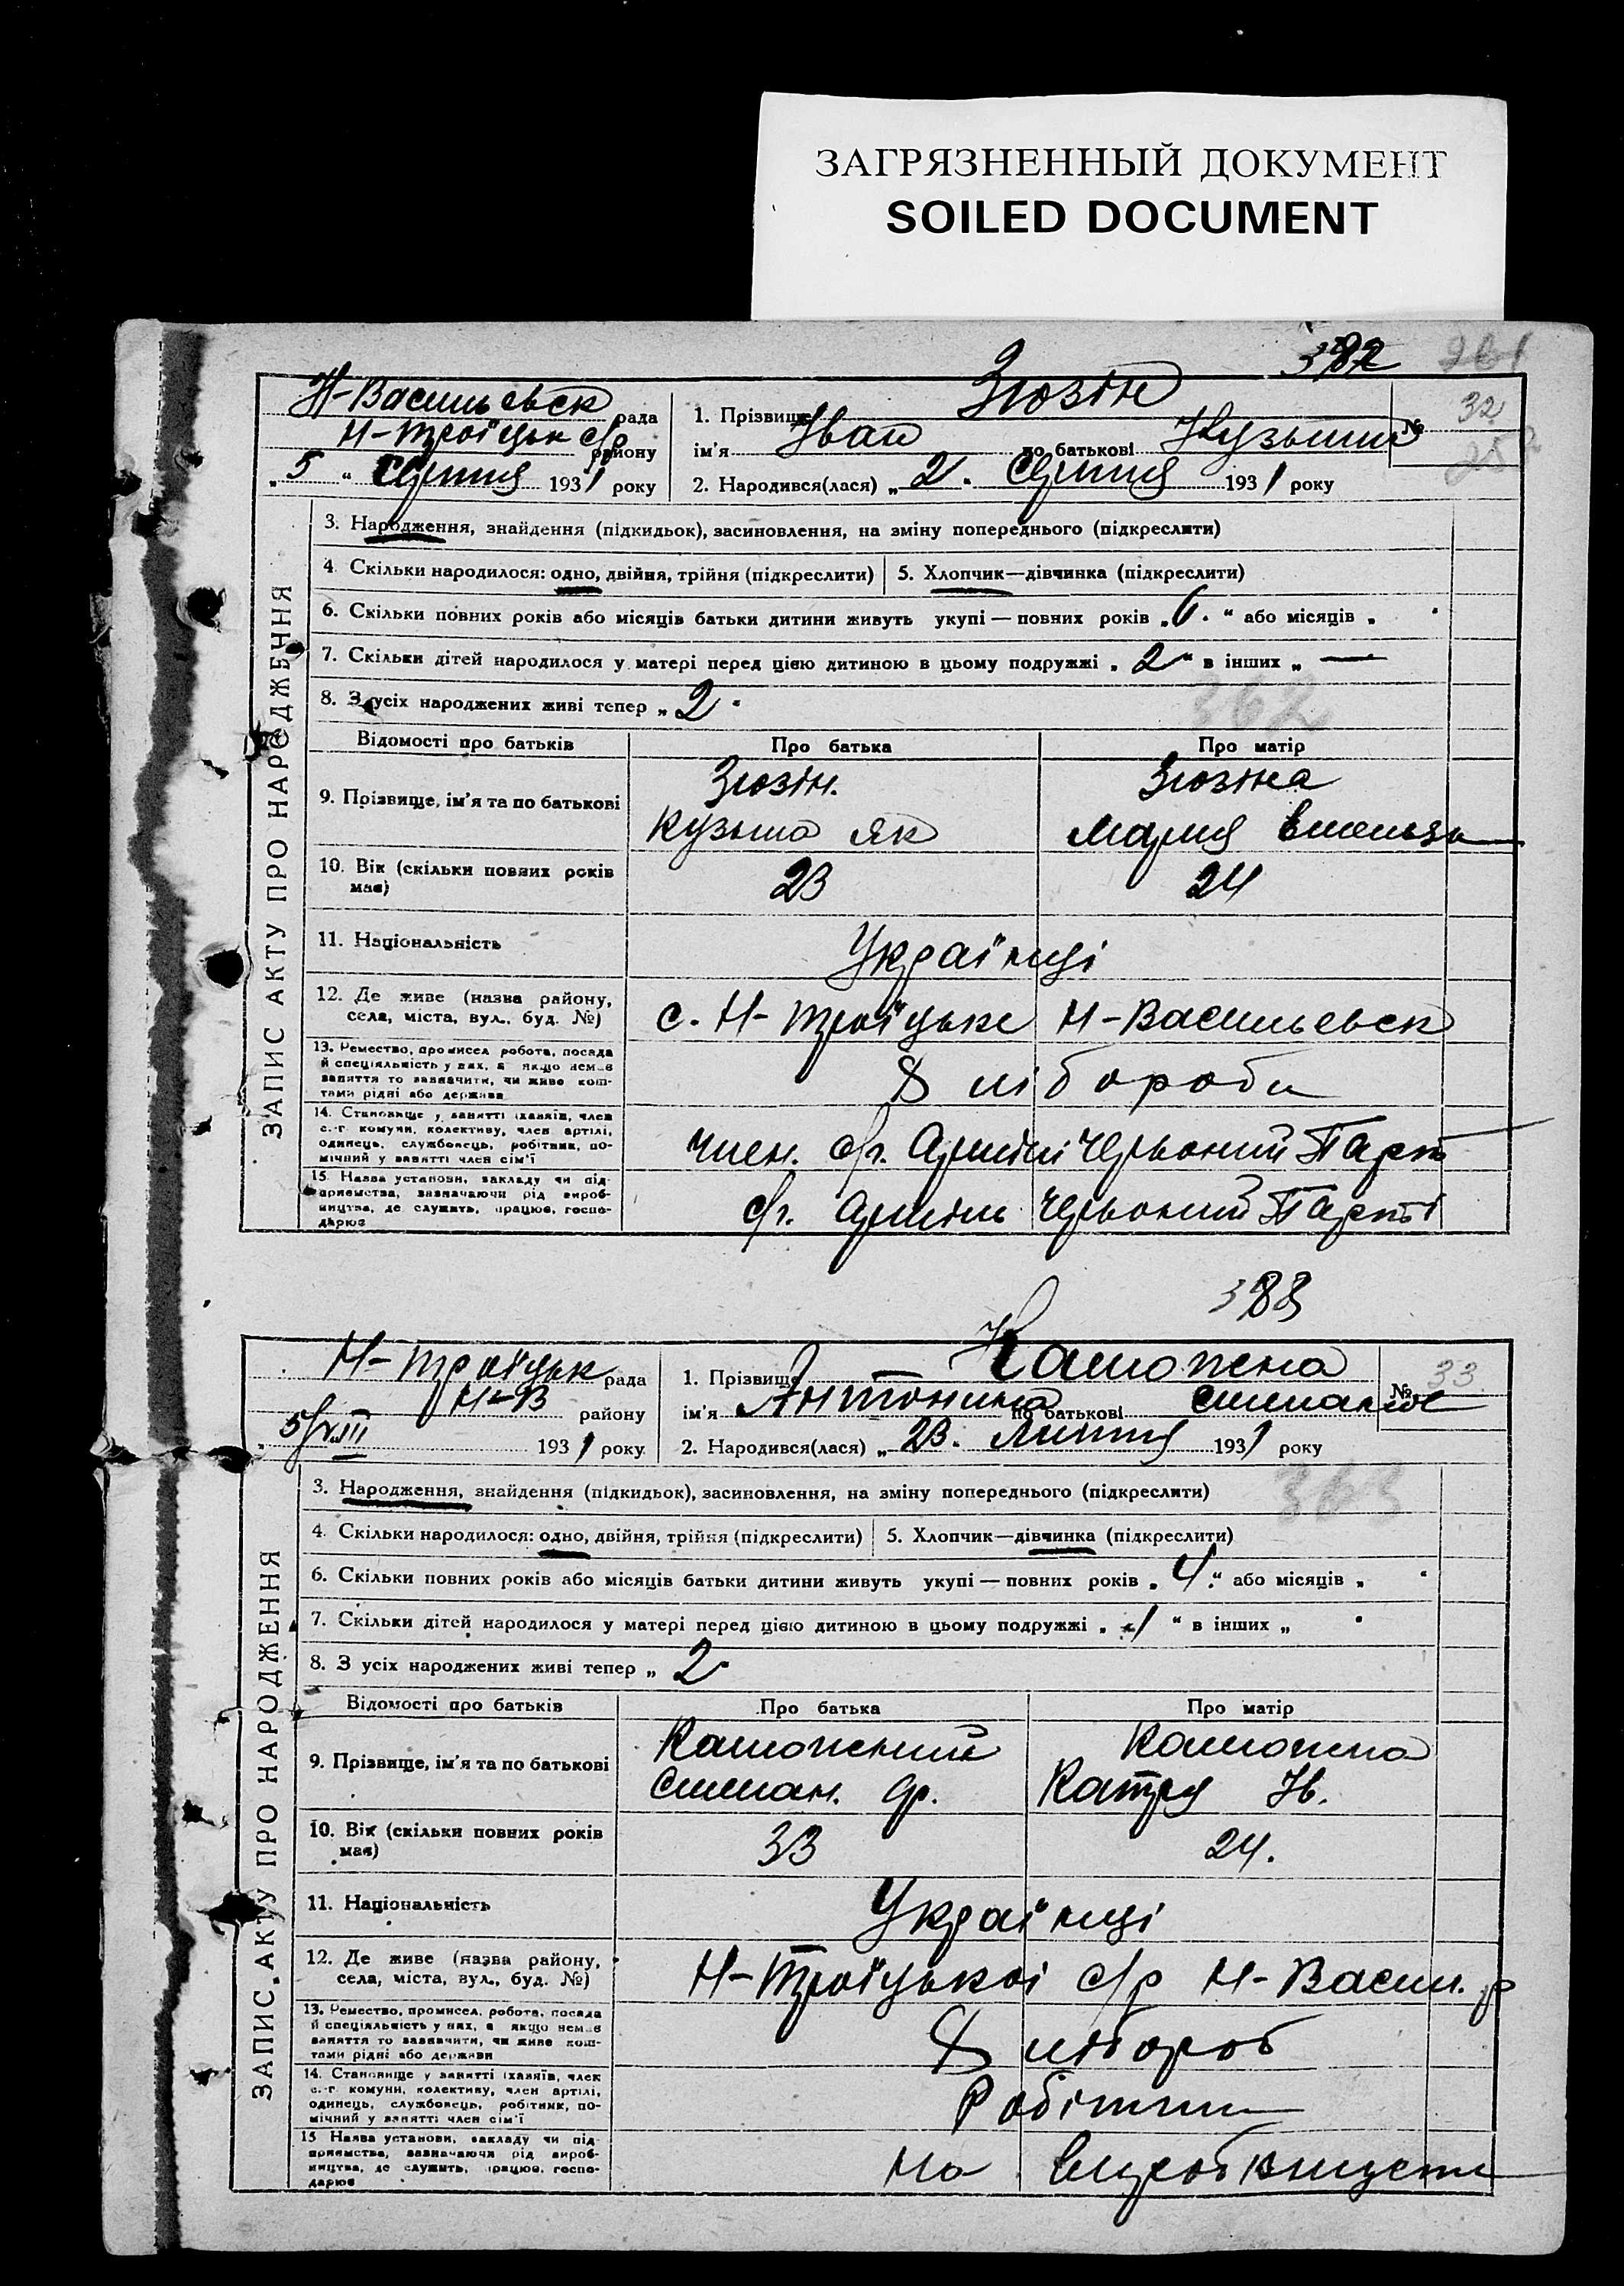 ЗАГРЯЗНЕННЫЙ ДОКУМЕНТ
SOILED DOCUMENT
382
Н-Васильевск рада
Н-Троїцьк с/р району
„5“ Серпня 1931 року
1. Прізвище Зюзін
ім'я Іван по батькові Кузьмич
2. Народився(лася) „2. Серпня 1931 року
№ 32
ЗАПИС АКТУ ПРО НАРОДЖЕННЯ
3. Народження, знайдення (підкидьок), засиновлення, на зміну попереднього (підкреслити)
4. Скільки народилося: одно, двійня, трійня (підкреслити) 5. Хлопчик—дівчинка (підкреслити)
6. Скільки повних років або місяців батьки дитини живуть укупі — повних років „6.“ або місяців „
7. Скільки дітей народилося у матері перед цією дитиною в цьому подружжі „2“ в інших „ —
362
8. З усіх народжених живі тепер „2.
Відомості про батьків Про батька Про матір
9. Прізвище, ім'я та по батькові Зюзін. Зюзіна
Кузьма Як Мария
10. Вік (скільки повних років має) 23 24
11. Національність Українці
12. Де живе (назва району, села, міста, вул., буд. №) с. Н-Троїцьке Н-Васильевск
13. Ремество, промисел робота, посада
й спеціяльність у них, а якщо немає
заняття то зазначити, чи живе кош-
тами рідні або держави
Хлібороби
14. Становище у занятті (хазяїн, член
с.-г. комуни, колективу, член артілі,
одинець, службовець, робітник, по-
мічний у занятті член сім'ї
член. с/г. Артілі Червоний Парт
15 Назва установи, закладу чи під-
приємства, зазначаючи рід вироб-
ництва, де служить, працює, госпо-
дарює
с/г. Артіль Червоний Парті
383
Н-Троїцьк рада
Н-В району
5/VIII 1931 року
1. Прізвище Каможена
ім'я Антонина по батькові
2. Народився(лася) „23. Липня 1931 року
№ 33
ЗАПИС АКТУ ПРО НАРОДЖЕННЯ
3. Народження, знайдення (підкидьок), засиновлення, на зміну попереднього (підкреслити)
363
4. Скільки народилося: одно, двійня, трійня (підкреслити) 5. Хлопчик—дівчинка (підкреслити)
6. Скільки повних років або місяців батьки дитини живуть укупі — повних років „4.“ або місяців „
7. Скільки дітей народилося у матері перед цією дитиною в цьому подружжі „1“ в інших „
8. З усіх народжених живі тепер „2
Відомості про батьків Про батька Про матір
9. Прізвище, ім'я та по батькові
Степан. Катря Ів.
10. Вік (скільки повних років має) 33 24.
11. Національність Українці
12. Де живе (назва району, села, міста, вул., буд. №) Н-Троїцької с/р Н-Васил. р
13. Ремество, промисел, робота, посада
й спеціяльність у них, а якщо немає
заняття то зазначити, чи живе кош-
тами рідні або держави
Хлібороб
14. Становище у занятті (хазяїн, член
с.-г. комуни, колективу, член артілі,
одинець, службовець, робітник, по-
мічний у занятті член сім'ї
Робітник
15 Назва установи, закладу чи під-
приємства, зазначаючи рід вироб-
ництва, де служить, працює, госпо-
дарює
на виробництві